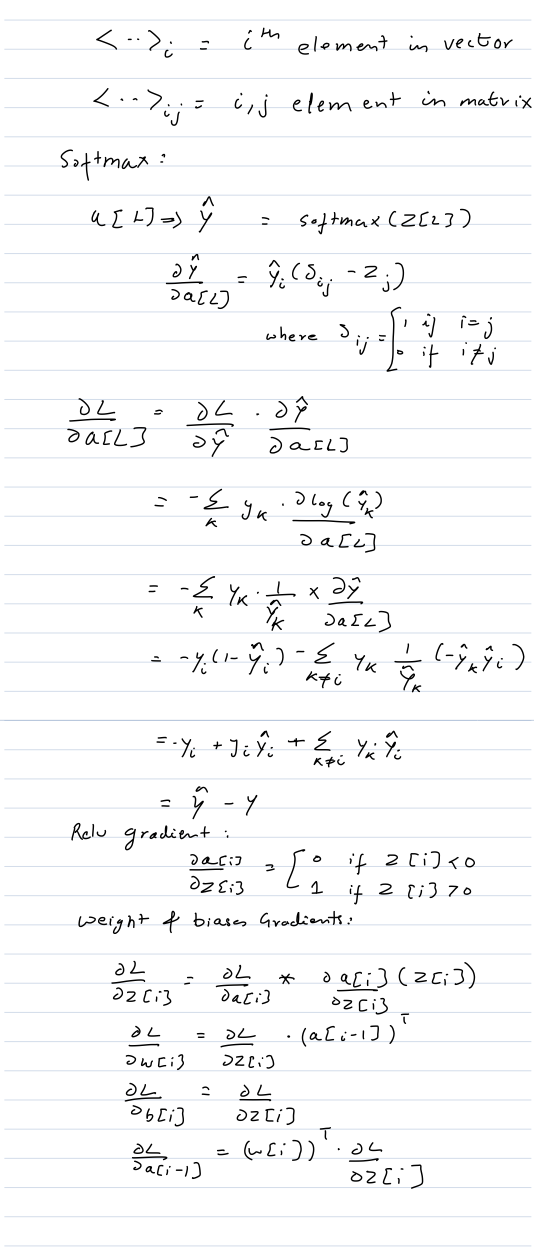 <··>ᵢ = iᵗʰ element in vector
<··>ᵢⱼ = i,j element in matrix
Softmax :
a[L] ⇒ Ŷ = softmax(Z[L])
∂Ŷ/∂a[L] = Ŷᵢ(δᵢⱼ - Zⱼ)
where δᵢⱼ = [1 if i=j
0 if i≠j
∂L/∂a[L] = ∂L/∂Ŷ · ∂Ŷ/∂a[L]
= -Σ_K y_K · ∂log(Ŷ_K)/∂a[L]
= -Σ_K Y_K · 1/Ŷ_K × ∂Ŷ/∂a[L]
= -Yᵢ(1-Ŷᵢ) - Σ_{K≠i} Y_K 1/Ŷ_K (-Ŷ_K Ŷᵢ)
= -Yᵢ + Yᵢ Ŷᵢ + Σ_{K≠i} Y_K · Ŷᵢ
= Ŷ - Y
Relu gradient :
∂a[i]/∂Z[i] = [0 if Z[i] < 0
1 if Z[i] > 0
weight & biases Gradients:
∂L/∂Z[i] = ∂L/∂a[i] * ∂a[i]/∂Z[i] (Z[i])
∂L/∂w[i] = ∂L/∂Z[i] · (a[i-1])ᵀ
∂L/∂b[i] = ∂L/∂Z[i]
∂L/∂a[i-1] = (w[i])ᵀ · ∂L/∂Z[i]